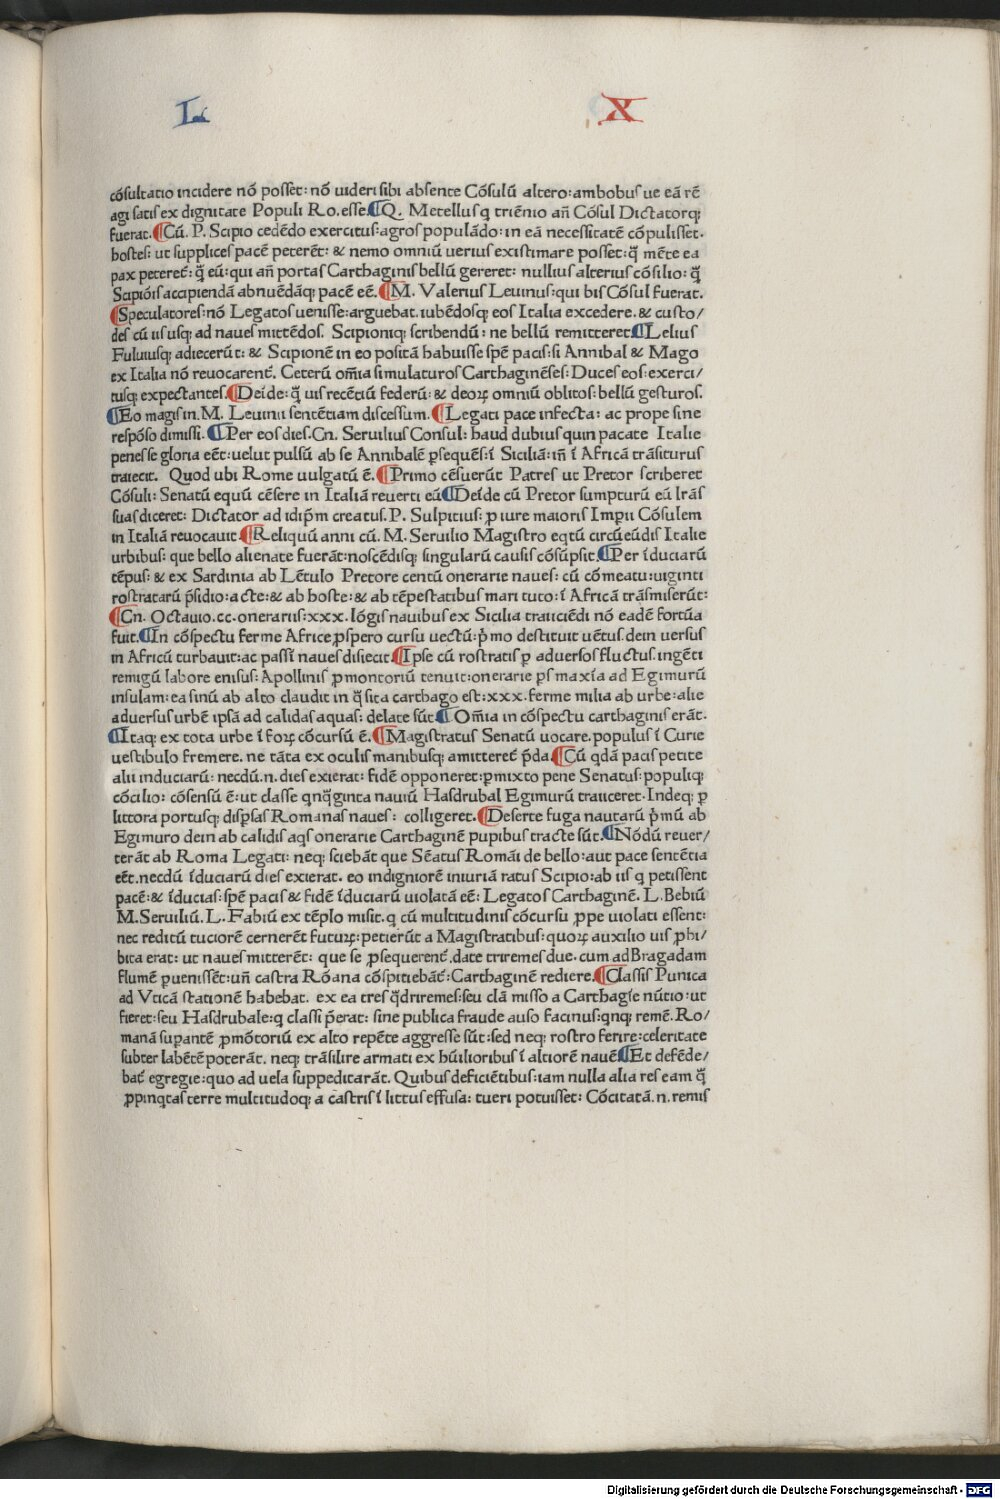 L X
cōsultatio incidere nō posset: nō uideri sibi absente Cōsulū altero: ambobus ue eā rē
agi satis ex dignitate Populi Ro. esse. ¶Q. Metellus q triēnio añ Cōsul Dictatorq;
fuerat. ¶Cū. P. Scipio cedēdo exercitus: agros populādo: in eā necessitatē cōpulisset.
hostes: ut supplices pacē peterēt: & nemo omniū uerius existimare posset: q̄ mēte ea
pax peteret᷑: q̄ eū: qui añ portas Carthaginis bellū gereret: nullius alterius cōsilio: q̄
Scipiōis accipiendā abnuēdāq; pacē eē. ¶M. Valerius Leuinus: qui bis Cōsul fuerat.
¶Speculatores: nō Legatos uenisse: arguebat. iubēdosq; eos Italia excedere. & custo/
des cū iis usq; ad naues mittēdos. Scipioniq; scribendū: ne bellū remitteret ¶Lelius
Fuluiusq; adiecerūt: & Scipionē in eo positā habuisse spē pacis: si Annibal & Mago
ex Italia nō reuocarent᷑. Ceterū om̄ia simulaturos Carthaginēses: Duces eos: exerci/
tusq; expectantes. ¶Deīde: q̄ uis recētiū federū: & deoꝝ omniū oblitos: bellū gesturos.
¶Eo magis in. M. Leuinii sentētiam discessum. ¶Legati pace infecta: ac prope sine
respōso dimissi. ¶Per eos dies. Cn. Seruilius Consul: haud dubius quin pacate Italie
penes se gloria eēt: uelut pulsū ab se Annibalē ꝑsequēs: ī Siciliā: iñ ī Africā trāsiturus
traiecit. Quod ubi Rome uulgatū ē. ¶Primo cēsuerūt Patres ut Pretor scriberet
Cōsuli: Senatū equū cēsere in Italiā reuerti eū ¶Deīde cū Pretor sumpturū eū lr̄as
suas diceret: Dictator ad idip̄m creatus. P. Sulpitius: ꝑ iure maioris Impii Cōsulem
in Italiā reuocauit ¶Reliquū anni cū. M. Seruilio Magistro eqtū circūeūdis Italie
urbibus: que bello alienate fuerāt: noscēdisq; singularū causis cōsūpsit. ¶Per īduciarū
tēpus: & ex Sardinia ab Lētulo Pretore centū onerarie naues: cū cōmeatu: uiginti
rostratarū p̄sidio: acte: & ab hoste: & ab tēpestatibus mari tuto: ī Africā trāsmiserūt:
¶Cn. Octauio. cc. onerariis: xxx. lōgis nauibus ex Sicilia traiiciēdi nō eadē fortūa
fuit. ¶In cōspectu ferme Africe ꝓspero cursu uectū: p̄mo destituit uētus. dein uersus
in Africū turbauit: ac passī naues disiecit. ¶Ipse cū rostratis ꝑ aduersos fluctus. ingēti
remigū labore enisus: Apollinis ꝓmontoriū tenuit: onerarie ꝑs maxīa ad Egimurū
insulam: ea sinū ab alto claudit in q̄ sita carthago est: xxx. ferme milia ab urbe: alie
aduersus urbē ipsā ad calidas aquas: delate sūt ¶Om̄ia in cōspectu carthaginis erāt.
¶Itaq; ex tota urbe ī foꝝ cōcursū ē. ¶Magistratus Senatū uocare. populus ī Curie
uestibulo fremere. ne tāta ex oculis manibusq; amitteret᷑ p̄da. ¶Cū qdā pacis petite
alii induciarū: necdū. n. dies exierat: fidē opponeret: ꝑmixto pene Senatus: populiq;
cōcilio: cōsensū ē: ut classe qnq̄ginta nauiū Hasdrubal Egimurū traiiceret. Indeq; ꝑ
littora portusq; disꝑsas Romanas naues: colligeret. ¶Deserte fuga nautarū p̄mū ab
Egimuro dein ab calidis aqs onerarie Carthaginē pupibus tracte sūt. ¶Nōdū reuer/
terāt ab Roma Legati: neq; sciebāt que Sēatus Romāi de bello: aut pace sentētia
eēt. necdū īduciarū dies exierat. eo indigniorē iniuriā ratus Scipio: ab iis q petissent
pacē: & īducias: spē pacis & fidē īduciarū uiolatā eē: Legatos Carthaginē. L. Bebiū
M. Seruiliū. L. Fabiū ex tēplo misit. q cū multitudinis cōcursu ꝓpe uiolati essent:
nec reditū tuciorē cernerēt futuꝝ: petierūt a Magistratibus: quoꝝ auxilio uis ꝓhi/
bita erat: ut naues mitterēt: que se ꝓsequerent᷑. date triremes due. cum ad Bragadam
flumē ꝑuenissēt: uñ castra Rōana cōspitiebāt᷑: Carthaginē rediere. ¶Classis Punica
ad Vticā stationē habebat. ex ea tres q̄driremes: seu clā misso a Carthagīe nūtio: ut
fieret: seu Hasdrubale: q classi p̄erat: sine publica fraude auso facinus: qnq; remē. Ro/
manā suꝑantē ꝓmōtoriū ex alto repēte aggresse sūt: sed neq; rostro ferire: celeritate
subter labētē poterāt. neq; trāsilire armati ex hūilioribus ī altiorē nauē ¶Et defēde/
bat᷑ egregie: quo ad uela suppeditarāt. Quibus deficiētibus: iam nulla alia res eam q̄
ꝓpinqtas terre multitudoq; a castris ī littus effusa: tueri potuisset: Cōcitatā. n. remis
Digitalisierung gefördert durch die Deutsche Forschungsgemeinschaft - DFG